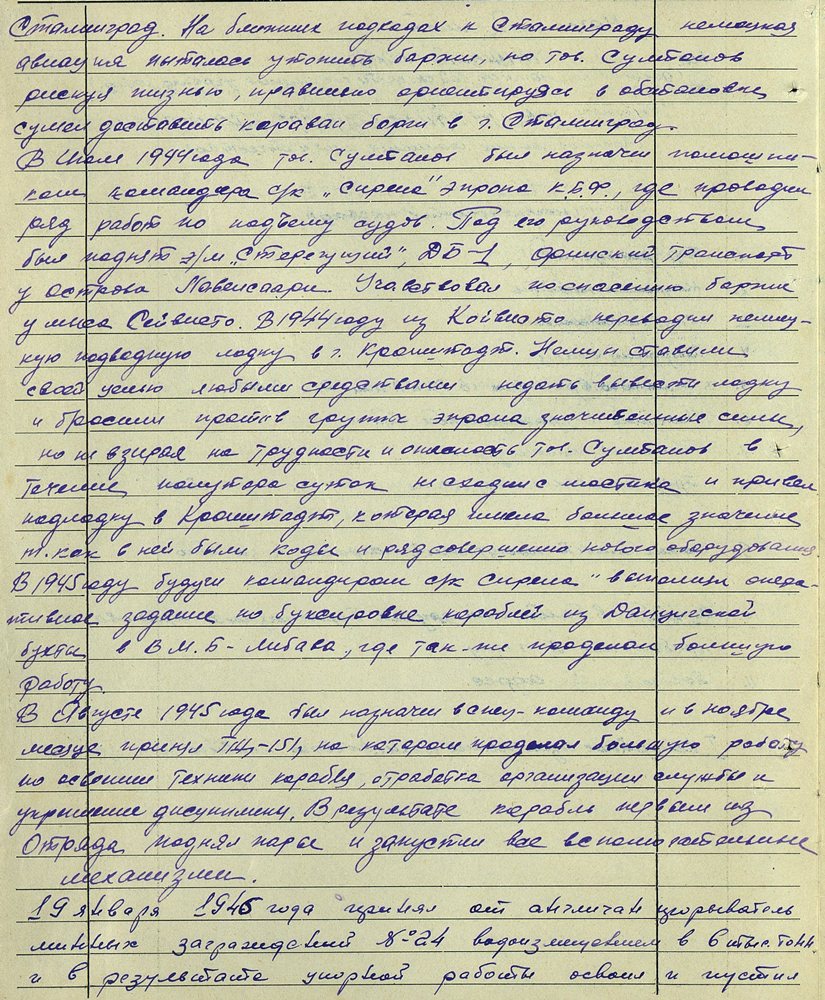 Сталинград. На ближних подходах к Сталинграду немецкая
авиация пыталась утопить баржи, но тов. Султанов
рискуя жизнью, правильно ориентируясь в обстановке
сумел доставить караван барж в г. Сталинград.
В Июле 1944 года тов. Султанов был назначен помощни-
ком командира с/к "Сирена" Эпрона К.Б.Ф., где проводил
ряд работ по подъему судов. Под его руководством
был поднят э/м "Стерегущий", ДБ-1, финский транспорт
у острова Лавенсаари. Участвовал по спасению баржи
у мыса Сейвясто. В 1944 году из Койвисто переводил немец-
кую подводную лодку в г. Кронштадт. Немцы ставили
своей целью любыми средствами не дать вывезти лодку
и бросили против группы эпрона значительные силы,
но не взирая на трудности и опасность тов. Султанов в
течение полутора суток не сходил с мостика и привел
подлодку в Кронштадт, которая имела большое значение
т.как в ней были коды и ряд совершенно нового оборудования
В 1945 году будучи командиром с/к Сирена" выполнил опера-
тивное задание по буксировке кораблей из Данцигской
бухты в В.М.Б-Либава, где так-же проделал большую
работу
В Августе 1945 года был назначен в спец-команду и в ноябре
месяце принял ТЩ-151, на котором проделал большую работу
по освоению техники корабля, отработка организации службы и
укрепление дисциплины. В результате корабль первым из
Отряда поднял пары и запустил все вспомогательные
механизмы.
19 января 1946 года принял от англичан прорыватель
минных заграждений № 24 водоизмещением в 6 тыс. тонн
и в результате упорной работы освоил и пустил